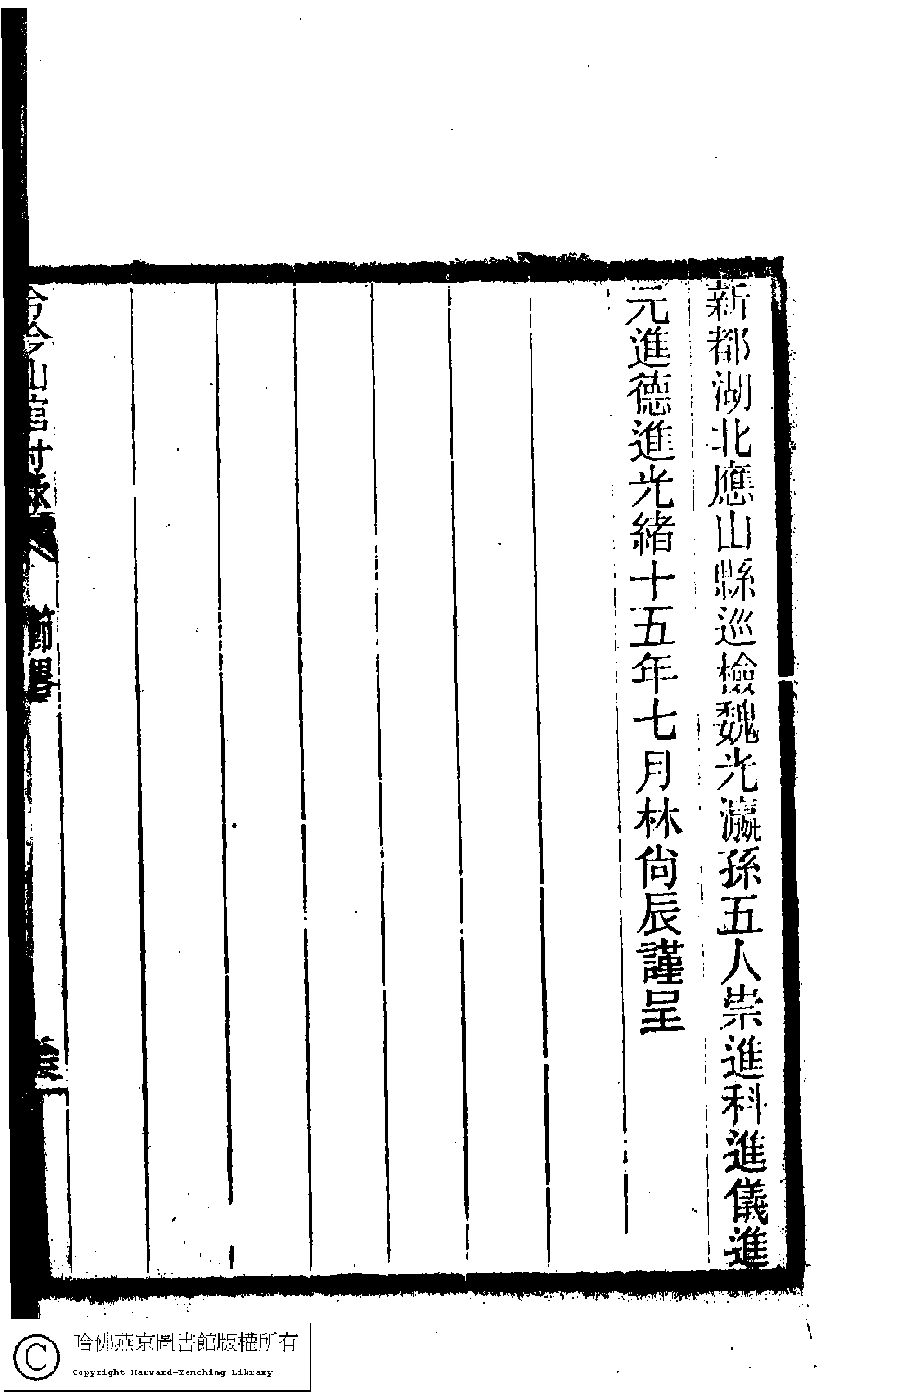 新都湖北應山縣巡檢魏光瀛孫五人崇進科進儀進
元進德進光緒十五年七月林尙辰謹呈
節畧
哈佛燕京圖書館版權所有
Copyright Harvard-Yenching Library